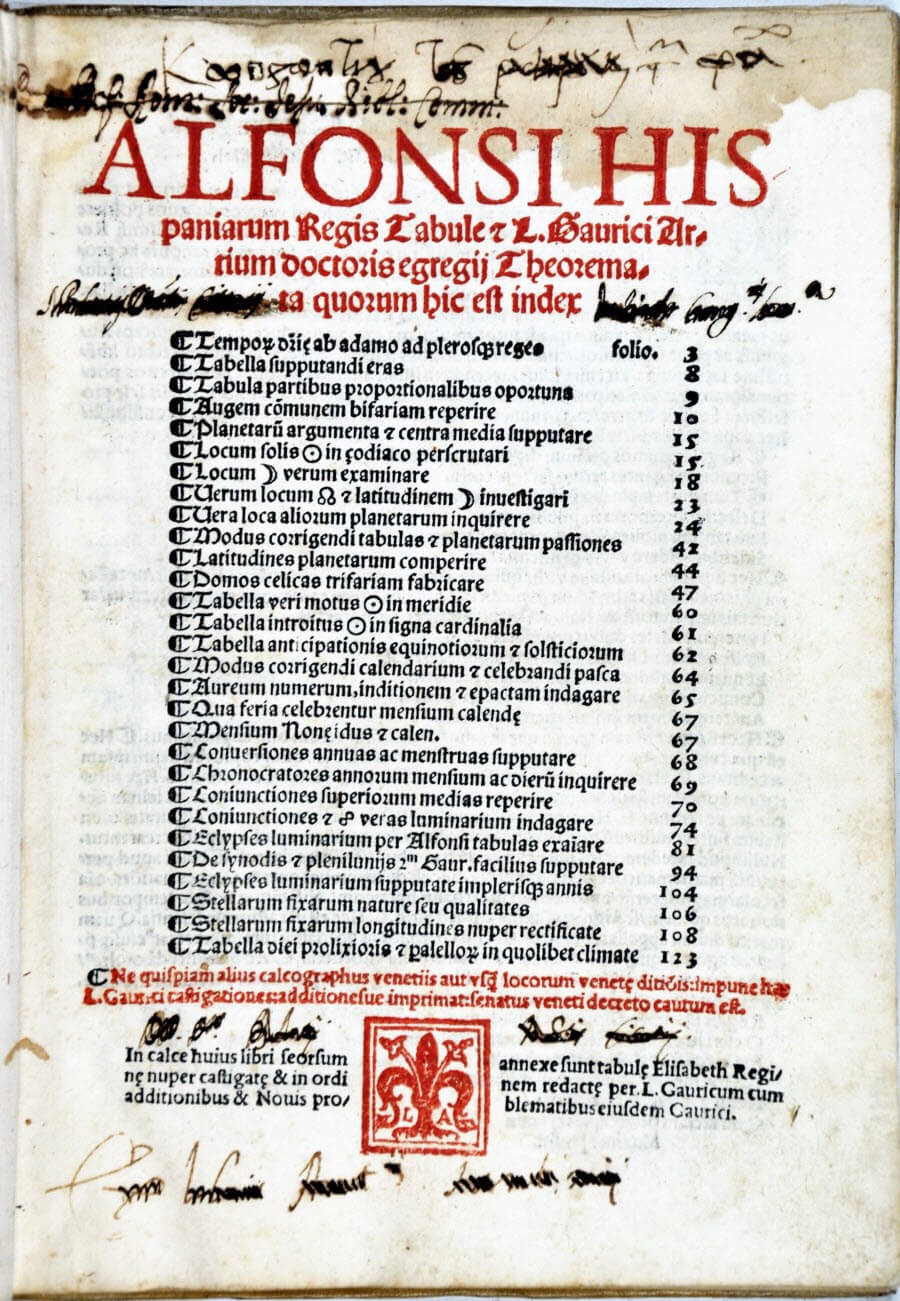 ALFONSI HIS
paniarum Regis Tabule ⁊ L. Gaurici Ar⸗
tium doctoris egregij Theorema⸗
ta quorum hic est index
⸿Tempoꝝ dr̄ię ab adamo ad plerosqꝫ reges folio. 3
⸿Tabella supputandi eras 8
⸿Tabula partibus proportionalibus oportuna 9
⸿Augem cōmunem bifariam reperire 10
⸿Planetarū argumenta ⁊ centra media supputare 15
⸿Locum solis ☉ in çodiaco perscrutari 15.
⸿Locum ☽ verum examinare 18
⸿Uerum locum ☊ ⁊ latitudinem ☽ inuestigari 23
⸿Uera loca aliorum planetarum inquirere 24
⸿Modus corrigendi tabulas ⁊ planetarum passiones 42
⸿Latitudines planetarum comperire 44
⸿Domos celicas trifariam fabricare 47
⸿Tabella veri motus ☉ in meridie 60
⸿Tabella introitus ☉ in signa cardinalia 61
⸿Tabella anticipationis equinotiorum ⁊ solsticiorum 62
⸿Modus corrigendi calendarium ⁊ celebrandi pasca 64
⸿Aureum numerum, inditionem ⁊ epactam indagare 65
⸿Qua feria celebrentur mensium calendę 67
⸿Mensium Nonę idus ⁊ calen. 67
⸿Conuersiones annuas ac menstruas supputare 68
⸿Chronocratores annorum mensium ac dierū inquirere 69
⸿Coniunctiones superiorum medias reperire 70
⸿Coniunctiones ⁊ ☍ veras luminarium indagare 74
⸿Eclypses luminarium per Alfonsi tabulas exaiare 81
⸿De synodis ⁊ plenilunijs 2ᵐ Gaur. facilius supputare 94
⸿Eclypses luminarium supputate implerisqꝫ annis 104
⸿Stellarum fixarum nature seu qualitates 106
⸿Stellarum fixarum longitudines nuper rectificate 108
⸿Tabella diei prolixioris ⁊ paľelloꝝ in quolibet climate 123
⸿Ne quispiam alius calcographus venetiis aut vsq̄ locorum venetę ditiōis: impune has
L. Gaurici castigationes: additionesue imprimat: senatus veneti decreto cautum est.
In calce huius libri seorsum annexe sunt tabulę Elisabeth Regi/
nę nuper castigatę & in ordi nem redactę per. L. Gauricum cum
additionibus & Nouis pro/ blematibus eiusdem Gaurici.
L A